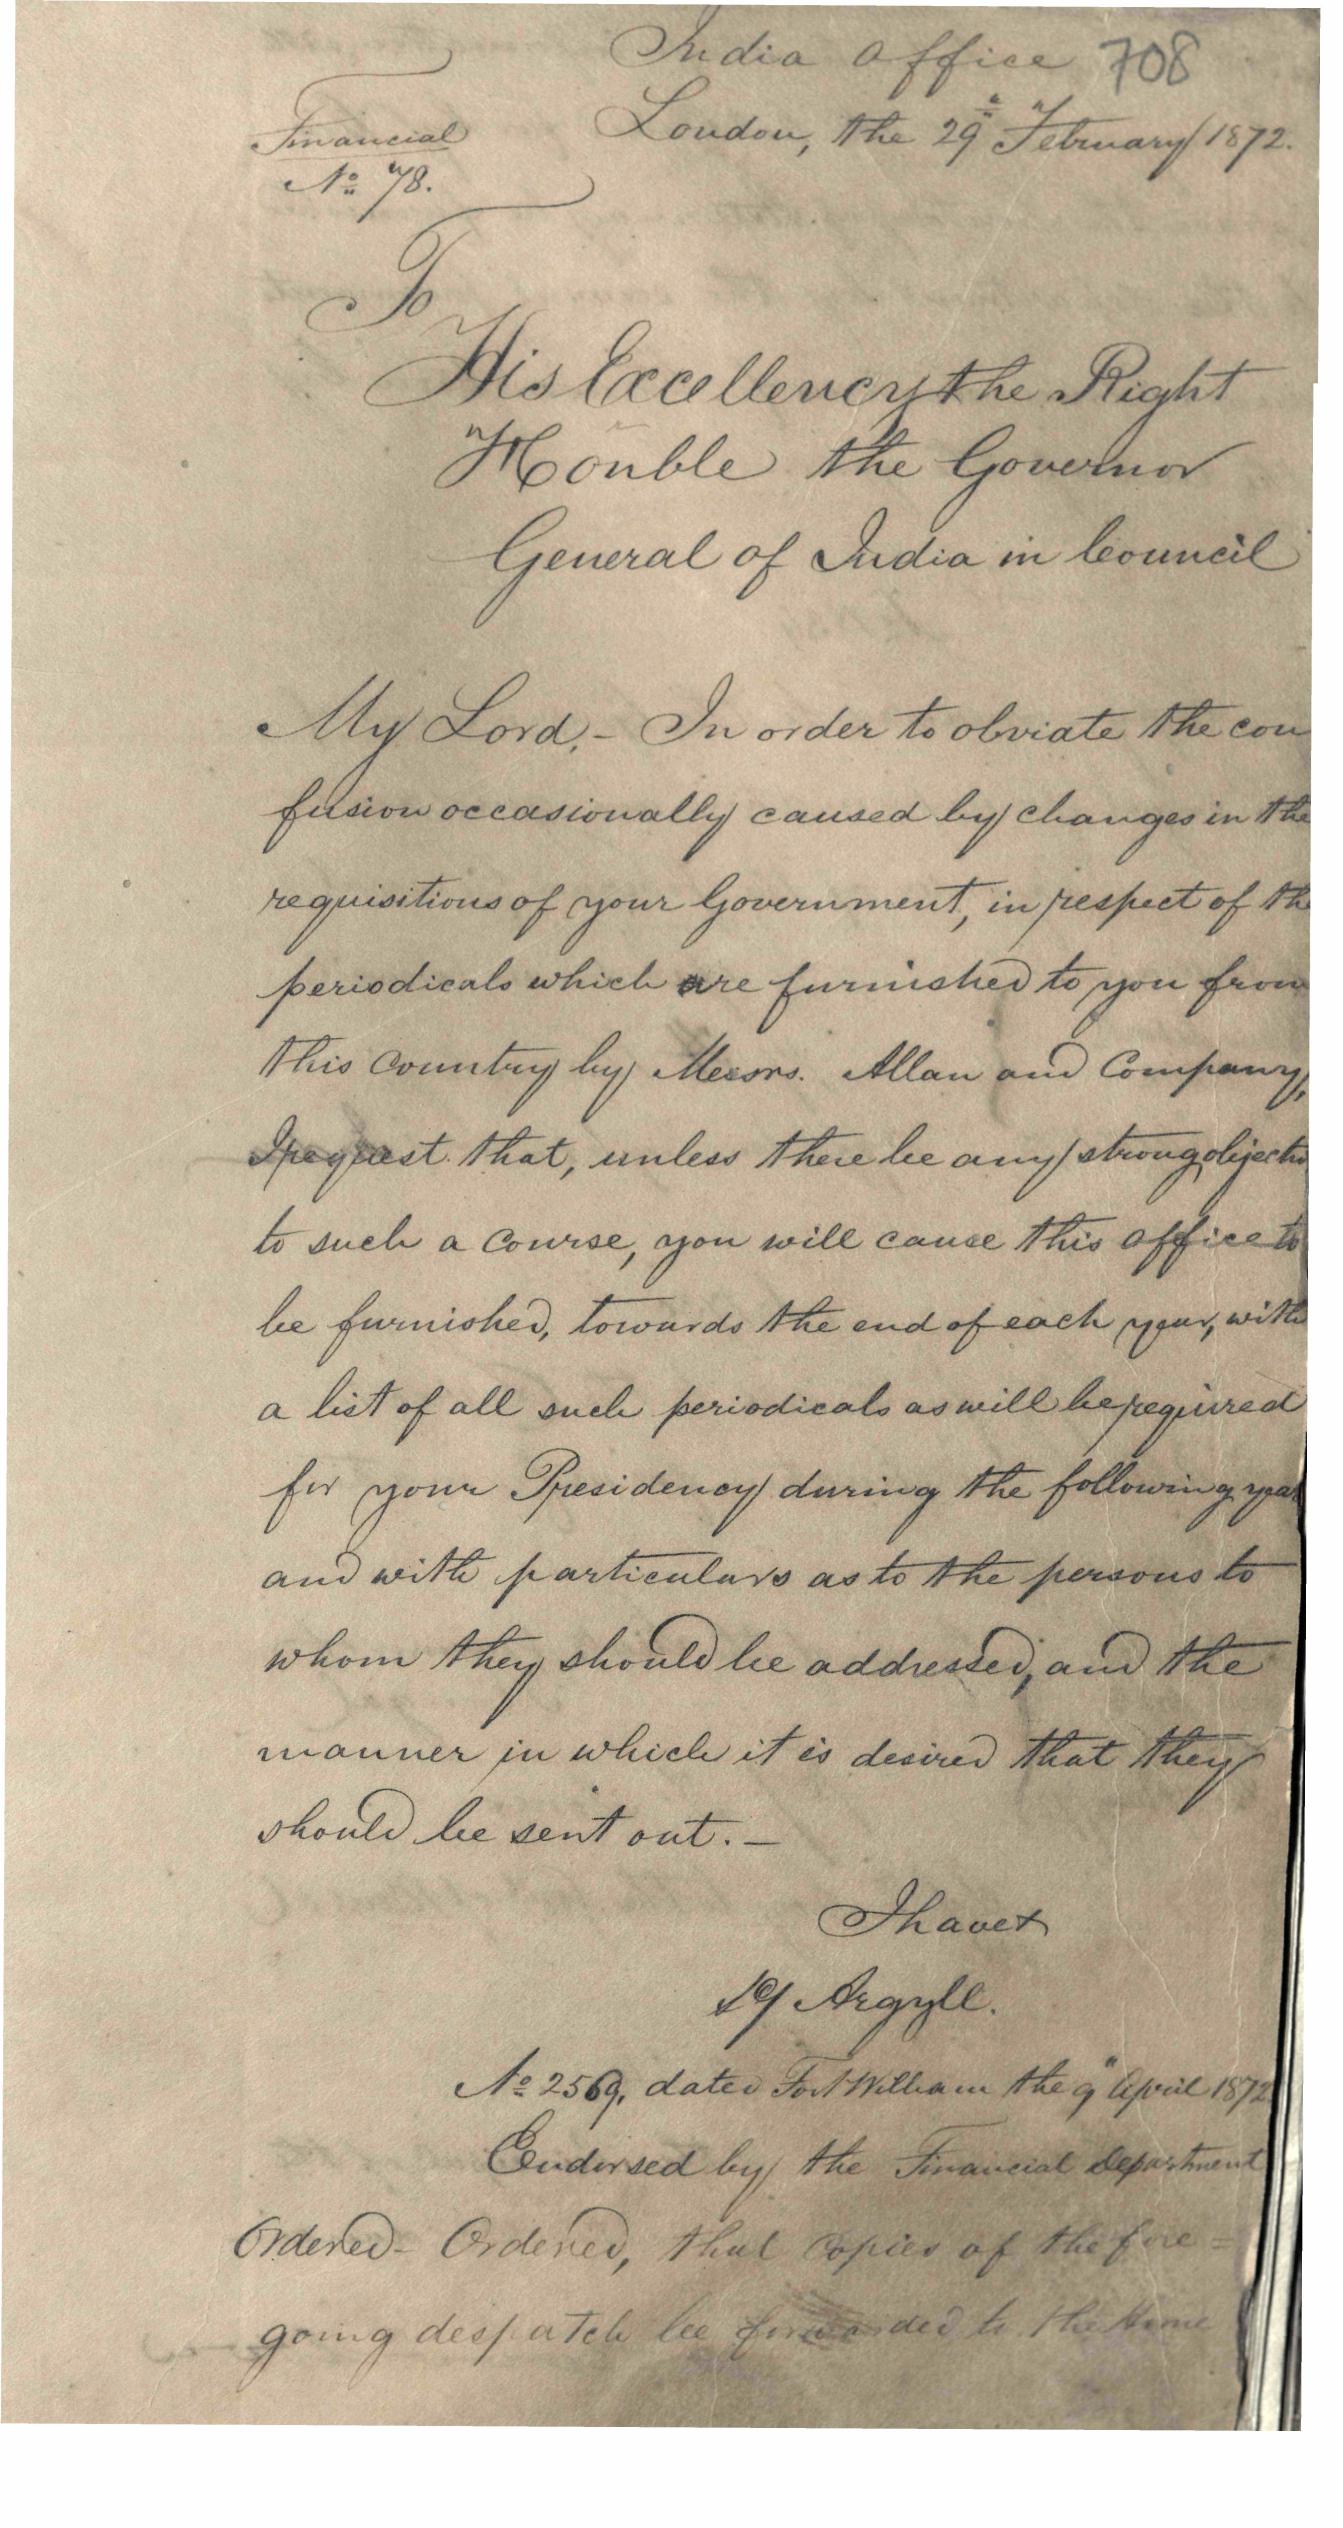 India Office 708
London, the 29th February 1872.
Financial
No 78.
To
His Excellency the Right
Honble the Governor
General of India in Council
My Lord, - In order to obviate the con
fusion occasionally caused by changes in the
requisitions of your Government, in respect of the
periodicals which are furnished to you from
this Country by Messrs. Allan and Company,
I request that, unless there be any strong objectio
to such a course, you will cause this office to
be furnished, towards the end of each year, with
a list of all such periodicals as will be required
for your Presidency during the following year
and with particulars as to the persons to
whom they should be addressed, and the
manner in which it is desired that they
should be sent out. -
I have &
Sd/ Argyll.
No 2569, dated Fort William the 9 April 1872
Endorsed by the Financial Department
Ordered - Ordered, that copies of the fore =
going despatch be forwarded to the Home